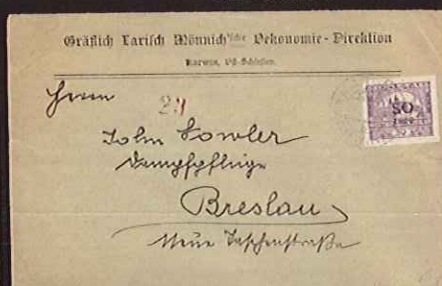 Gräflich Larisch Mönnich'sche Oekonomie-Direktion
Karwin, Öst.-Schlesien.
Herrn
John Fowler
Dampfpflüge
Breslau
Neue Taschenstraße
SO
1920